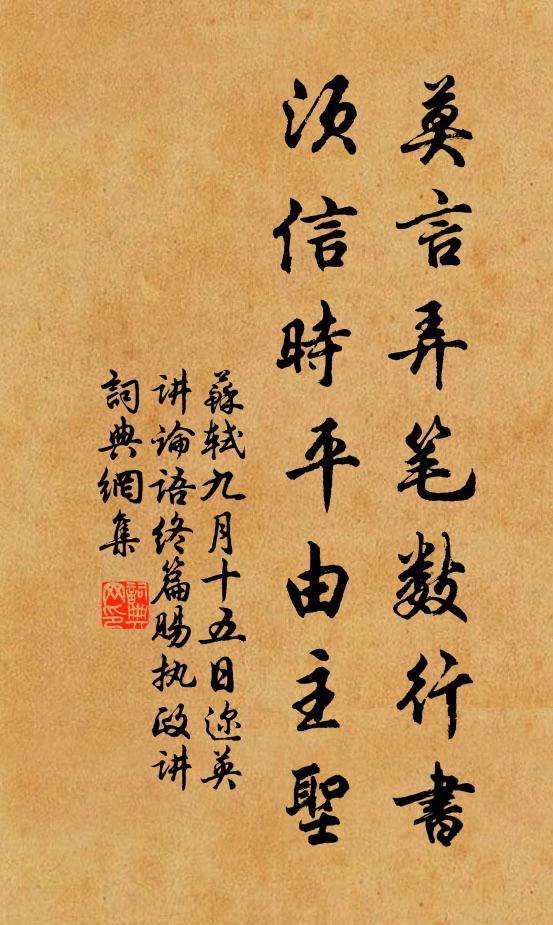 莫言弄笔数行書
須信時平由主聖
蘇軾九月十五日迩英
讲論语终篇賜执政讲
詞典網集
詞典网印